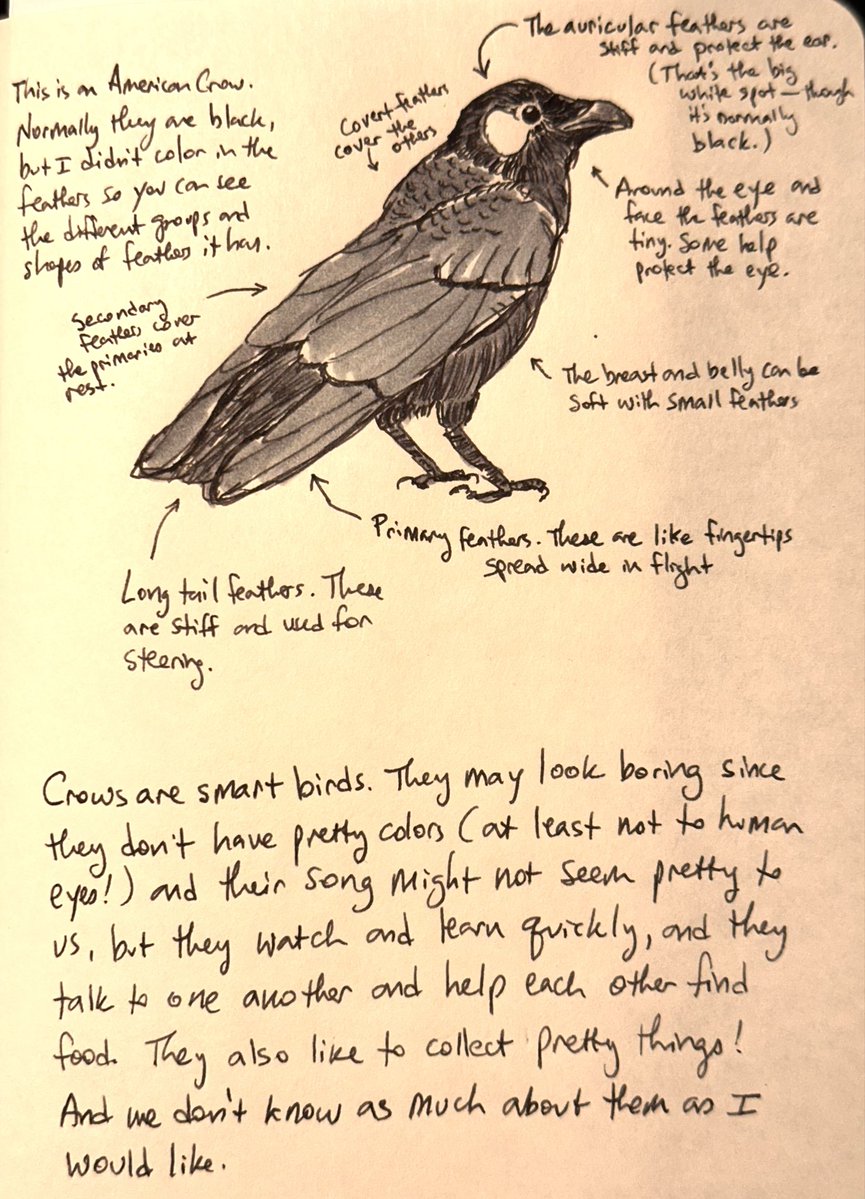 The auricular feathers are
stiff and protect the ear.
(That's the big
white spot — though
it's normally
black.)
This is an American Crow.
Normally they are black,
but I didn't color in the
feathers so you can see
the different groups and
shapes of feathers it has.
Covert feathers
cover the
others
Around the eye and
face the feathers are
tiny. Some help
protect the eye.
Secondary
feathers cover
the primaries at
rest.
The breast and belly can be
soft with small feathers
Primary feathers. These are like fingertips
spread wide in flight
Long tail feathers. These
are stiff and used for
steering.
Crows are smart birds. They may look boring since
they don't have pretty colors (at least not to human
eyes!) and their song might not seem pretty to
us, but they watch and learn quickly, and they
talk to one another and help each other find
food. They also like to collect pretty things!
And we don't know as much about them as I
would like.